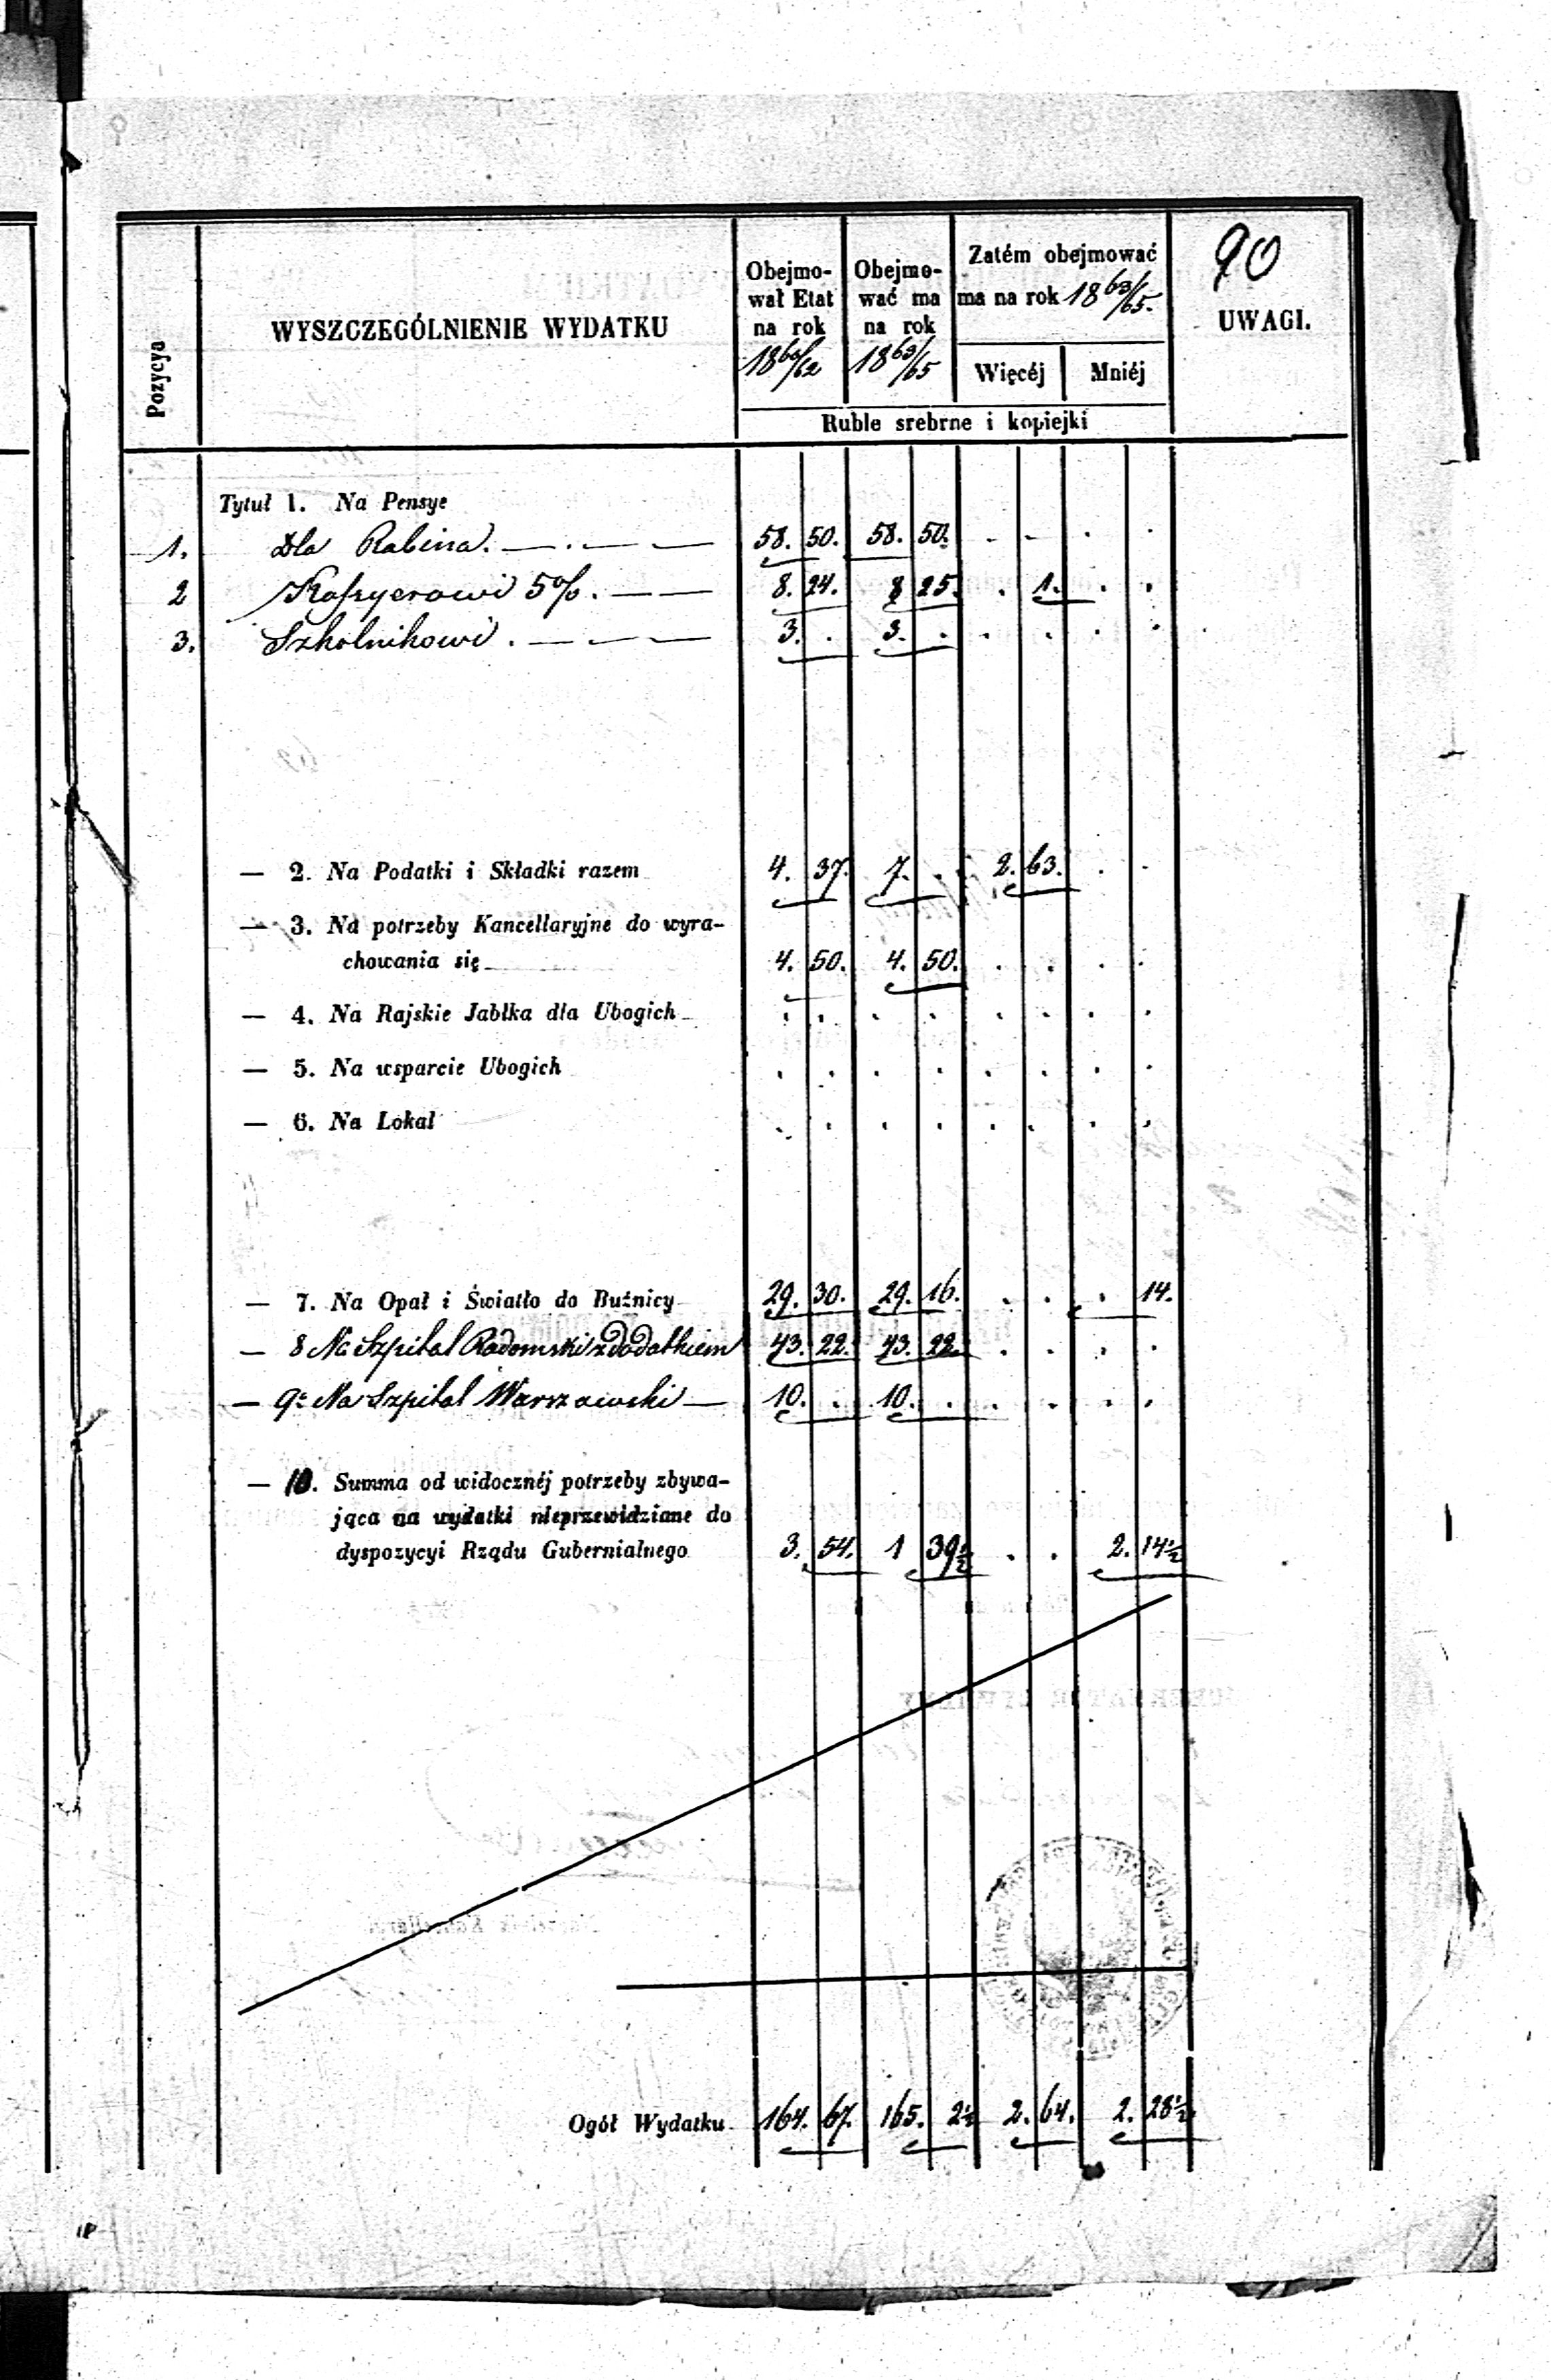 90
Pozycya
WYSZCZEGÓLNIENIE WYDATKU
Obejmo-
wał Etat
na rok
18 60/62
Obejmo-
wać ma
na rok
18 63/65
Zatém obejmować
ma na rok 18 63/65.
Więcéj Mniéj
Ruble srebrne i kopiejki
UWAGI.
Tytuł 1. Na Pensye
1. Dla Rabina. 58. 50. 58. 50. - - . .
2 Kassyerowi 5%. 8. 24. 8 25. . 1. . .
3. Szkolnikowi. 3. . 3. . . . . .
— 2. Na Podatki i Składki razem 4. 37. 7. . 2. 63. . .
— 3. Na potrzeby Kancellaryjne do wyra-
chowania się 4. 50. 4. 50. . . . .
— 4. Na Rajskie Jabłka dla Ubogich . . . . . . . .
— 5. Na wsparcie Ubogich . . . . . . . .
— 6. Na Lokal . . . . . . . .
— 7. Na Opał i Światło do Buźnicy 29. 30. 29. 16. . . . 14.
— 8 Na Szpital Radomski z dodatkiem 43. 22. 43. 22. . . . .
— 9. Na Szpital Warszawski — 10. . 10. . . . . .
— 10. Summa od widocznéj potrzeby zbywa-
jąca na wydatki nieprzewidziane do
dyspozycyi Rządu Gubernialnego 3. 54. 1 39½ . . 2. 14½
Ogół Wydatku 164. 67. 165. 2½ 2. 64. 2. 28½